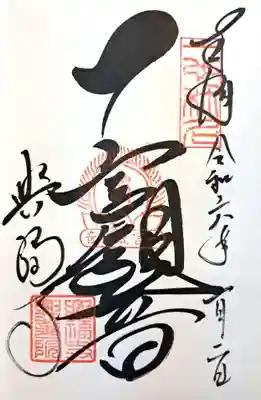 奉拝 令和六年 一月二日
一言観音
興福寺